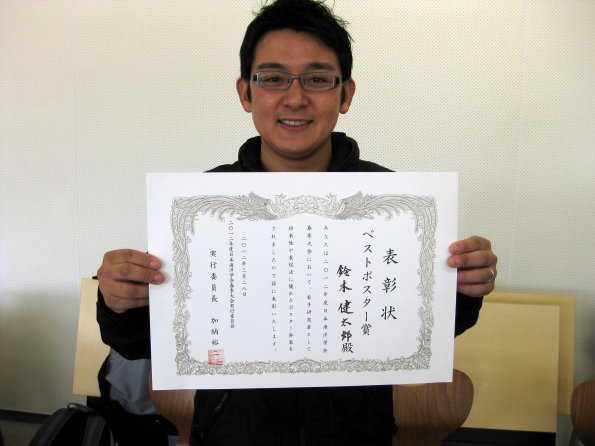 表彰状
ベストポスター賞
鈴木健太郎殿
あなたは二〇一二年度日本海洋学会
春季大会において、若手研究者として
将来性や表現法に優れたポスター発表を
されましたので茲に表彰いたします。
二〇一二年三月二八日
二〇一二年度日本海洋学会春季大会実行委員会
実行委員長 加納裕